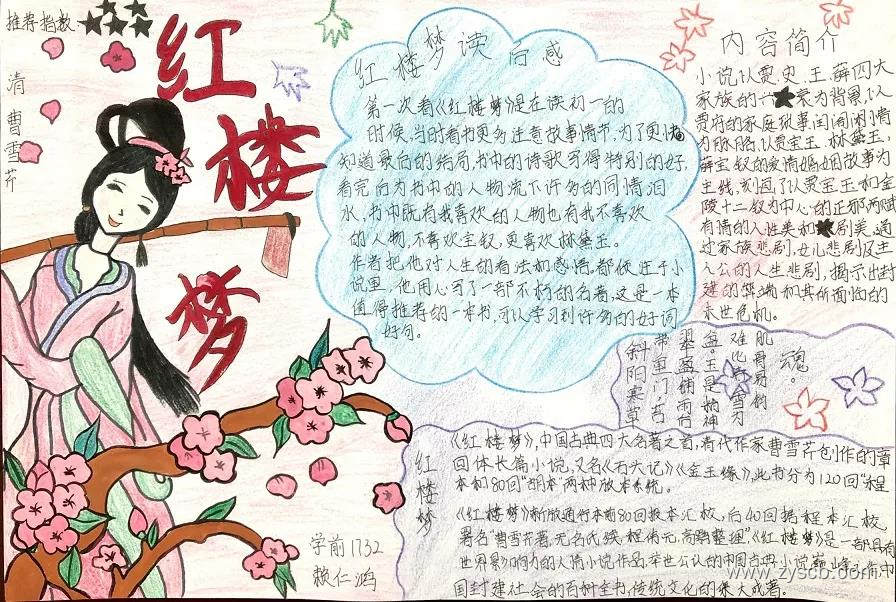 推荐指数
清
曹
雪
芹
红
楼
梦
红楼梦读后感
第一次看《红楼梦》是在读初一的
时候,当时看书更多注意故事情节,为了更快
知道最后的结局,书中的诗歌写得特别的好,
看完后为书中的人物流下许多的同情泪
水,书中既有我喜欢的人物也有我不喜欢
的人物,不喜欢宝钗,更喜欢林黛玉。
作者把他对人生的看法和感情,都倾注于小
说里,他用心写了一部不朽的名著,这是一本
值得推荐的一本书,可以学习到许多的好词
好句。
内容简介
小说以贾、史、王、薛四大
家族的兴衰为背景,以
贾府的家庭琐事闺阁闲情
为脉络,以贾宝玉、林黛玉、
薛宝钗的爱情婚姻故事为
主线,刻画了以贾宝玉和金
陵十二钗为中心的正邪两赋
有情的人性美和悲剧美。通
过家族悲剧,女儿悲剧及主
人公的人生悲剧,揭示出封
建的弊端和其所面临的
末世危机。
魂。
斜阳寒草
红
楼
梦
《红楼梦》,中国古典四大名著之首,清代作家曹雪芹创作的章
回体长篇小说,又名《石头记》《金玉缘》,此书分为120回"程
本和80回"脂本"两种版本系统。
《红楼梦》新版通行本前80回据本汇校,后40回据程本汇校,
署名"曹雪芹著,无名氏续,程伟元,高鹗整理"《红楼梦》是一部具有
世界影响力的人情小说作品,举世公认的中国古典小说巅峰之作,中
国封建社会的百科全书,传统文化的集大成者。
学前1732
赖仁鸿
www.zyscb.com